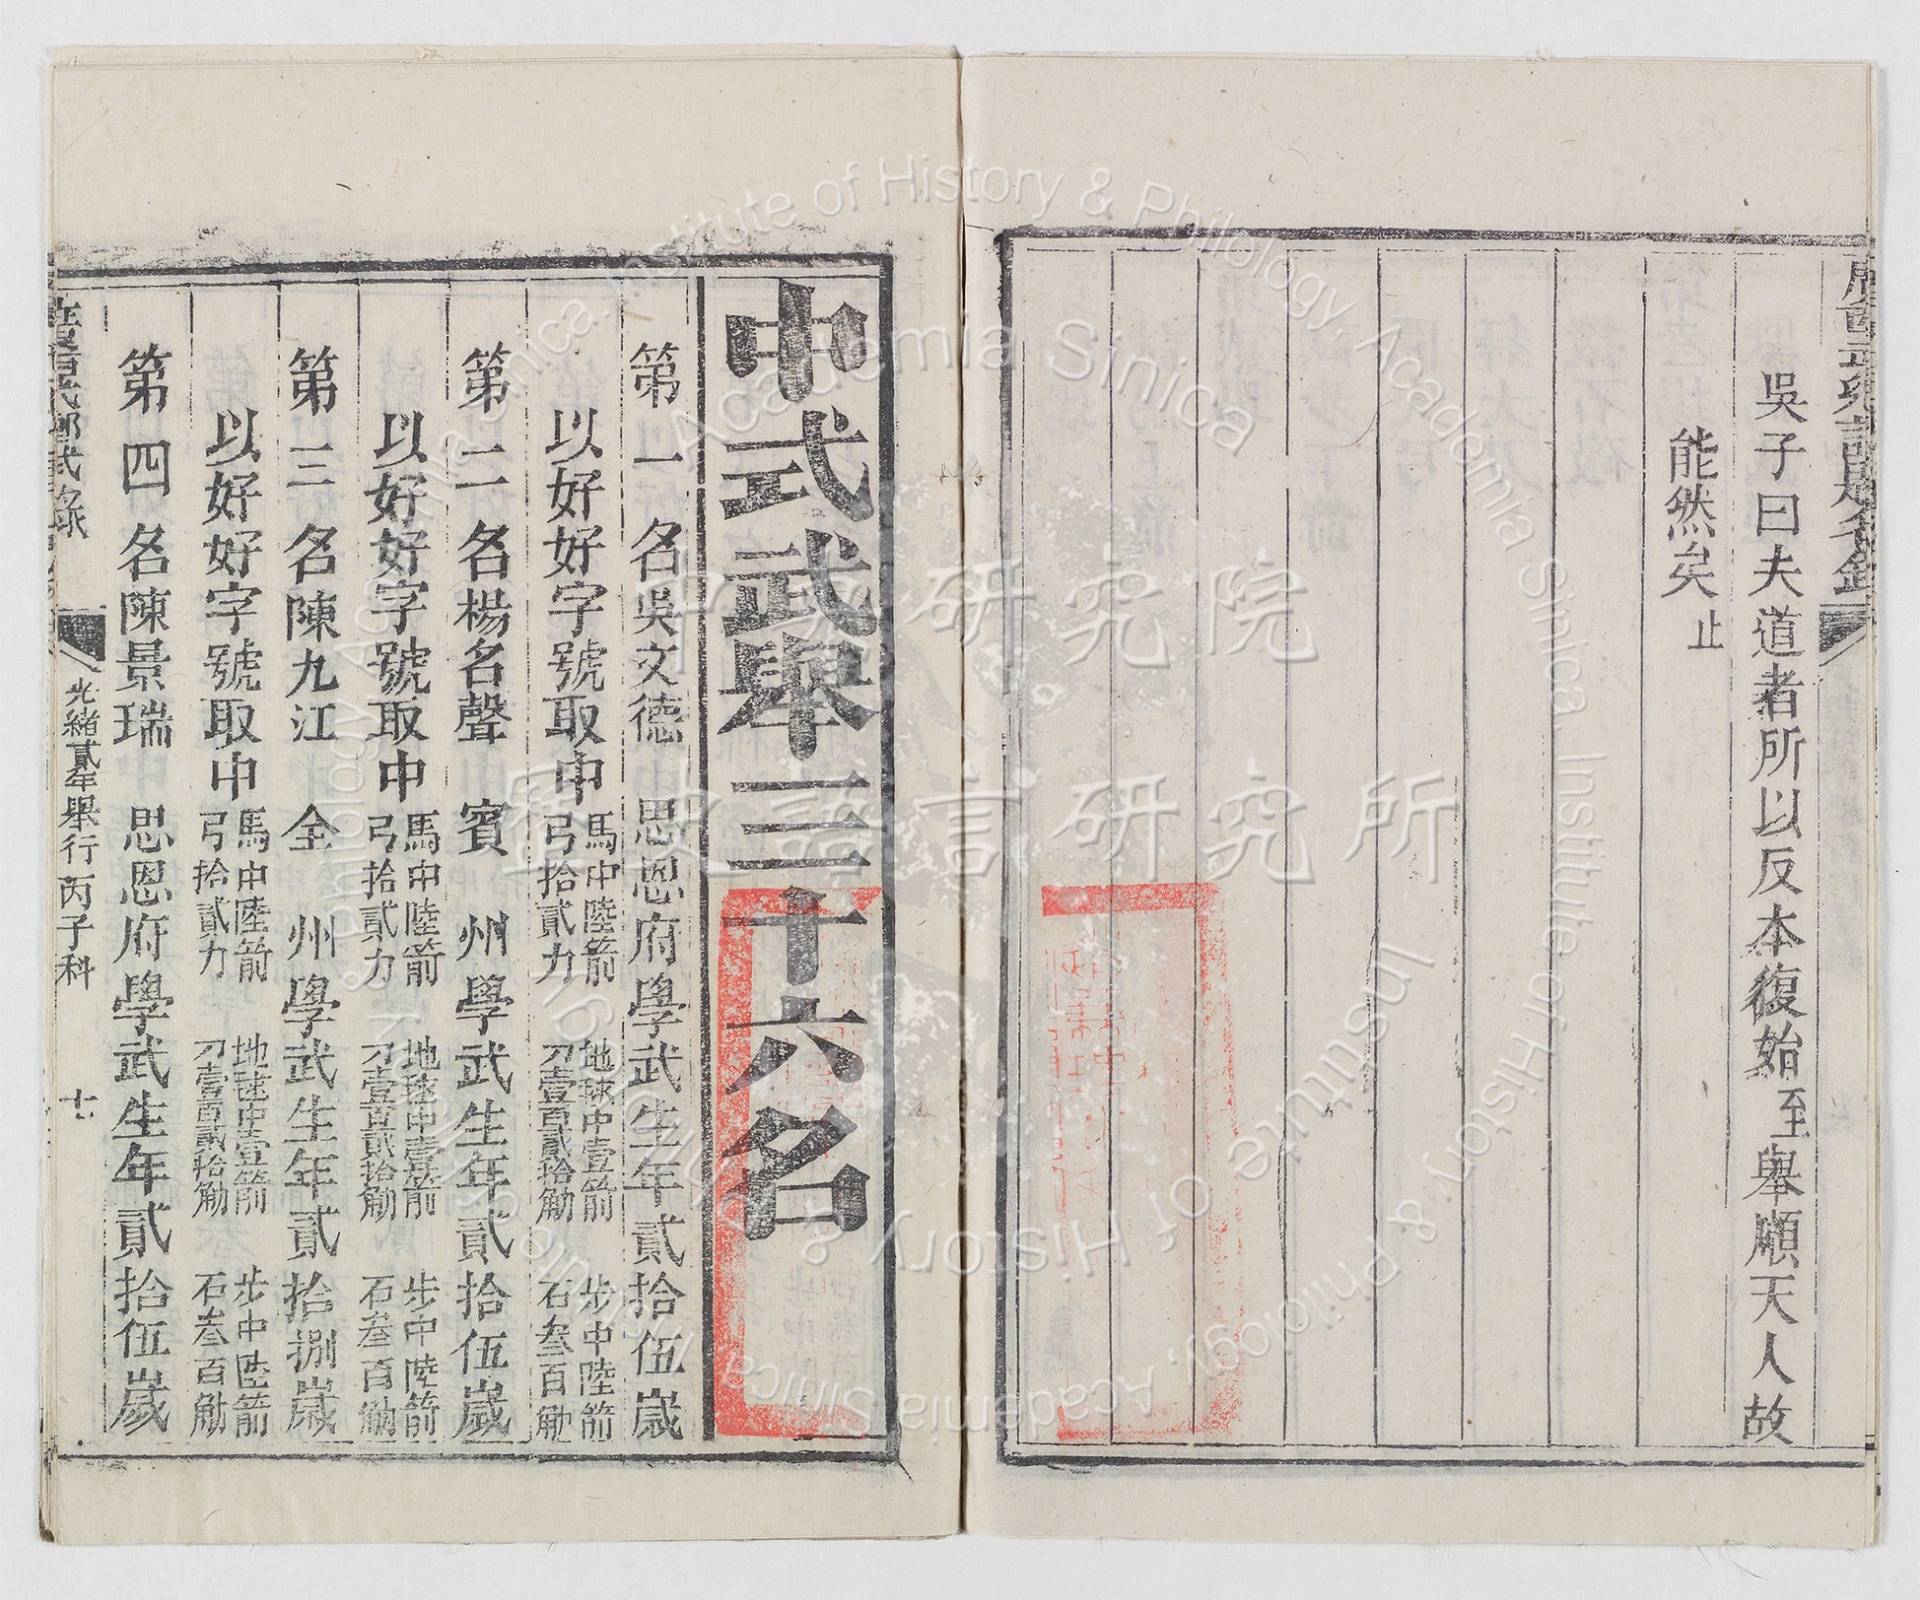 吳子曰夫道者所以反本復始至舉順天人故
能然矣止
中式武舉三十六名
第一名吳文德 思恩府學武生年貳拾伍歲
以好好字號取中 馬中陸箭 弓拾貳力 地球中壹箭 刀壹百貳拾觔 步中陸箭 石叁百觔
第二名楊名聲 賓州學武生年貳拾伍歲
以好好字號取中 馬中陸箭 弓拾貳力 地球中壹箭 刀壹百貳拾觔 步中陸箭 石叁百觔
第三名陳九江 全州學武生年貳拾捌歲
以好好字號取中 馬中陸箭 弓拾貳力 地球中壹箭 刀壹百貳拾觔 步中陸箭 石叁百觔
第四名陳景瑞 思恩府學武生年貳拾伍歲
武鄉試錄 光緒貳年舉行丙子科
中央研究院
歷史語言研究所
Institute of History & Philology, Academia Sinica